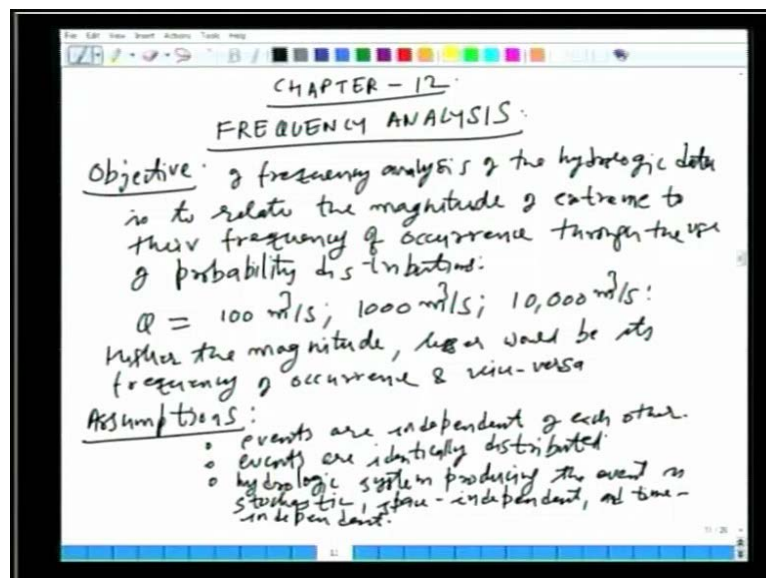 File Edit View Insert Actions Tools Help
CHAPTER - 12.
FREQUENCY ANALYSIS.
Objective: of frequency analysis of the hydrologic data
is to relate the magnitude of extreme to
their frequency of occurrence through the use
of probability distributions:
Q = 100 m³/s; 1000 m³/s; 10,000 m³/s:
Higher the magnitude, lesser would be its
frequency of occurrence & vice-versa
Assumptions:
• events are independent of each other.
• events are identically distributed
• hydrologic system producing the event is
stochastic, space-independent, and time-
independent.